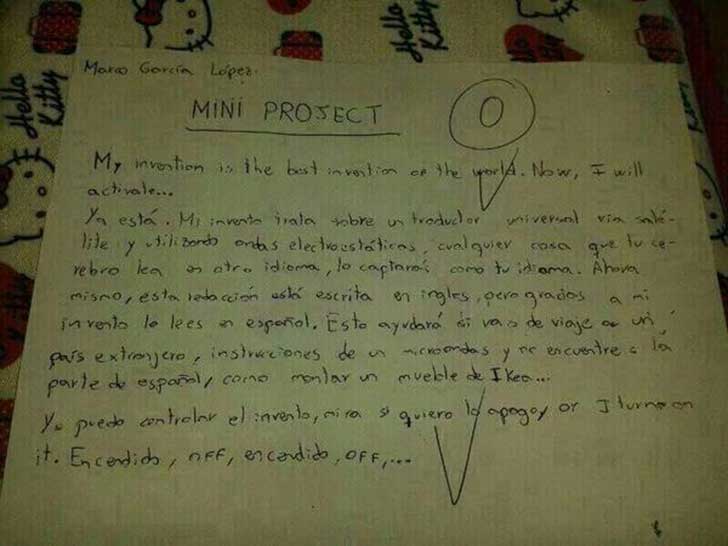 Hello Kitty
Hello Kitty
Marco García López.
MINI PROJECT
0
My invention is the best invention of the world. Now, I will
activate...
Ya está. Mi invento trata sobre un traductor universal vía saté-
lite y utilizando ondas electroestáticas, cualquier cosa que tu ce-
rebro lea en otro idioma, lo captará como tu idioma. Ahora
mismo, esta redacción está escrita en ingles, pero gracias a mi
invento lo lees en español. Esto ayudará si vas de viaje a un
país extranjero, instrucciones de un microondas y no encuentres la
parte de español, como montar un mueble de Ikea...
Yo puedo controlar el invento, mira si quiero lo apago y or I turn on
it. Encendido, OFF, encendido, OFF,...